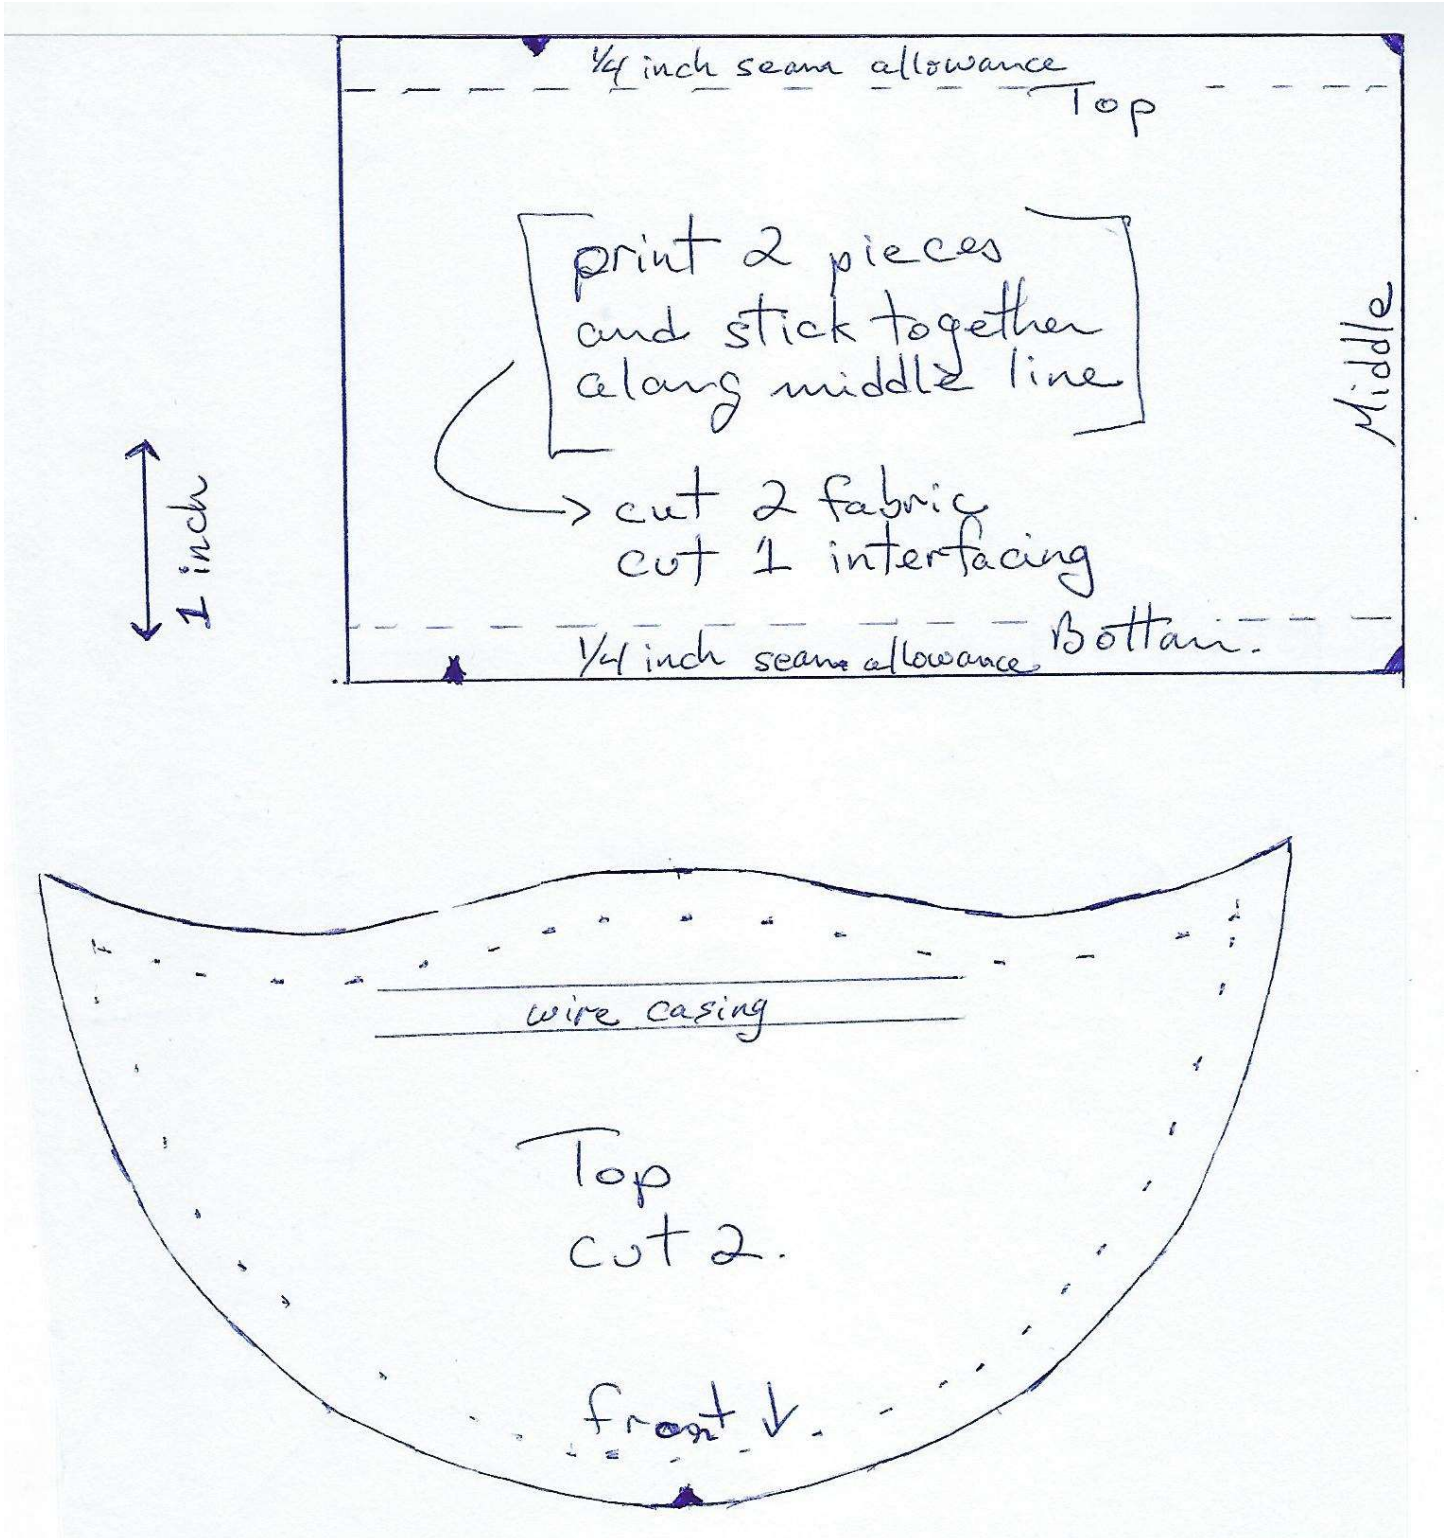 1/4 inch seam allowance
Top
print 2 pieces
and stick together
along middle line
Middle
1 inch
cut 2 fabric
cut 1 interfacing
Bottom.
1/4 inch seam allowance
wire casing
Top
cut 2.
front ↓